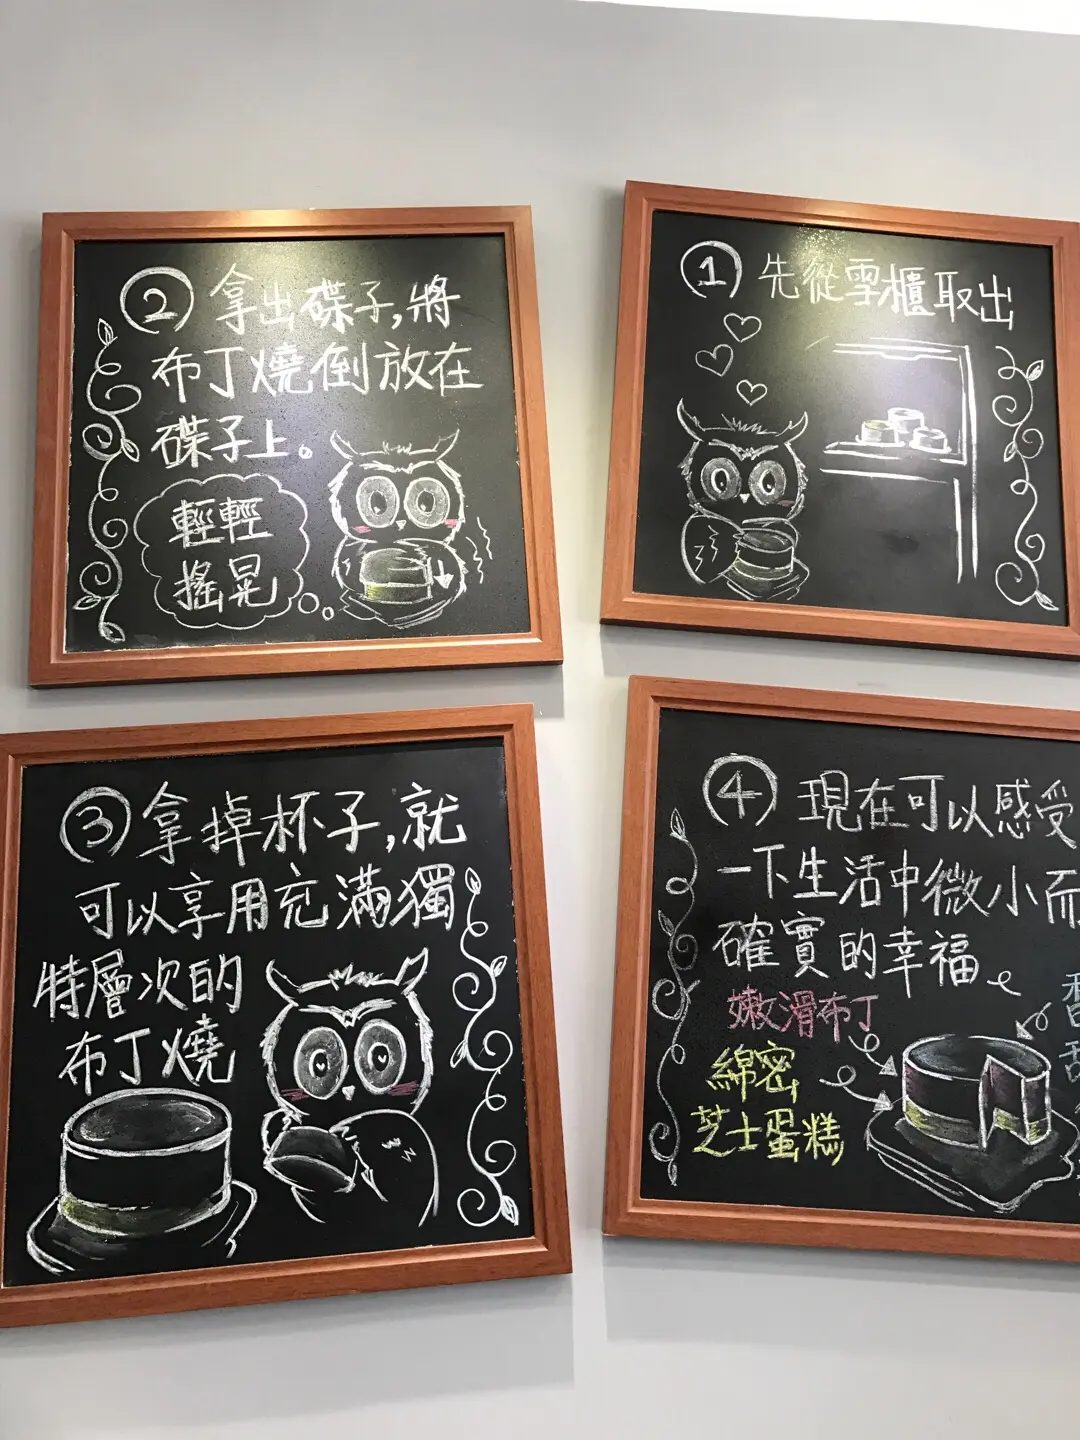 ① 先從雪櫃取出
② 拿出碟子,將
布丁燒倒放在
碟子上。
輕輕
搖晃
③ 拿掉杯子,就
可以享用充滿獨
特層次的
布丁燒
④ 現在可以感受
一下生活中微小而
確實的幸福。
嫩滑布丁
綿密
芝士蛋糕
香
甜